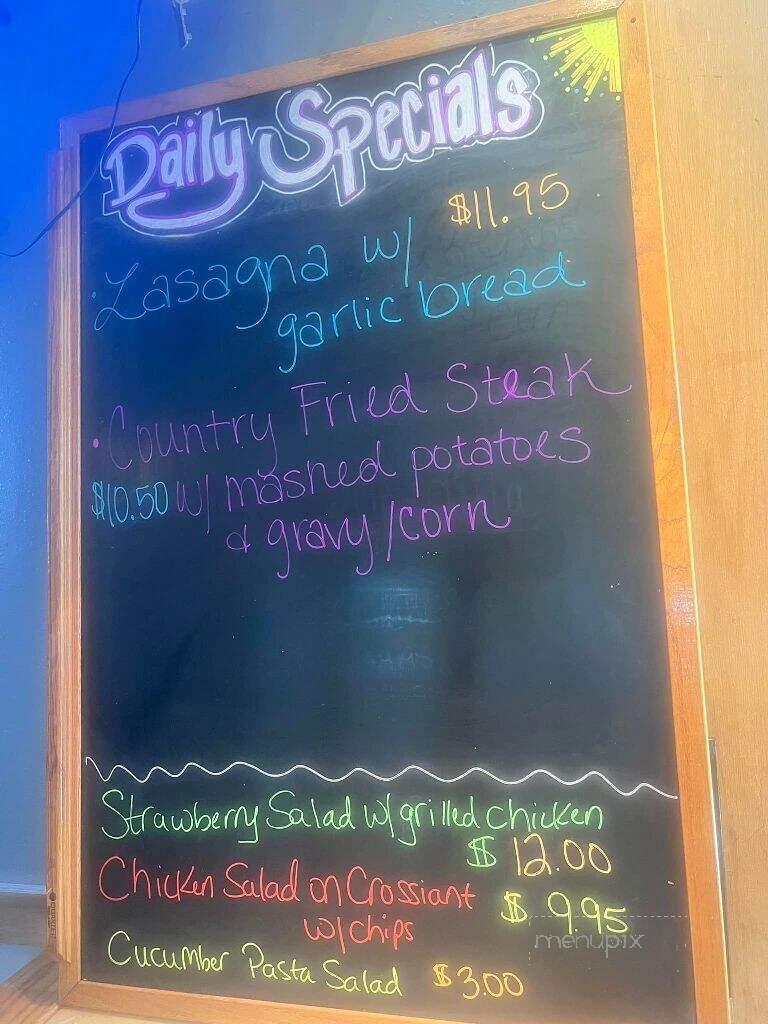 Daily Specials
$11.95
• Lasagna w/
garlic bread
• Country Fried Steak
$10.50 w/ mashed potatoes
& gravy/corn
Strawberry Salad w/ grilled chicken
$ 12.00
Chicken Salad on Crossiant
$ 9.95
w/chips
Cucumber Pasta Salad $3.00
menupix